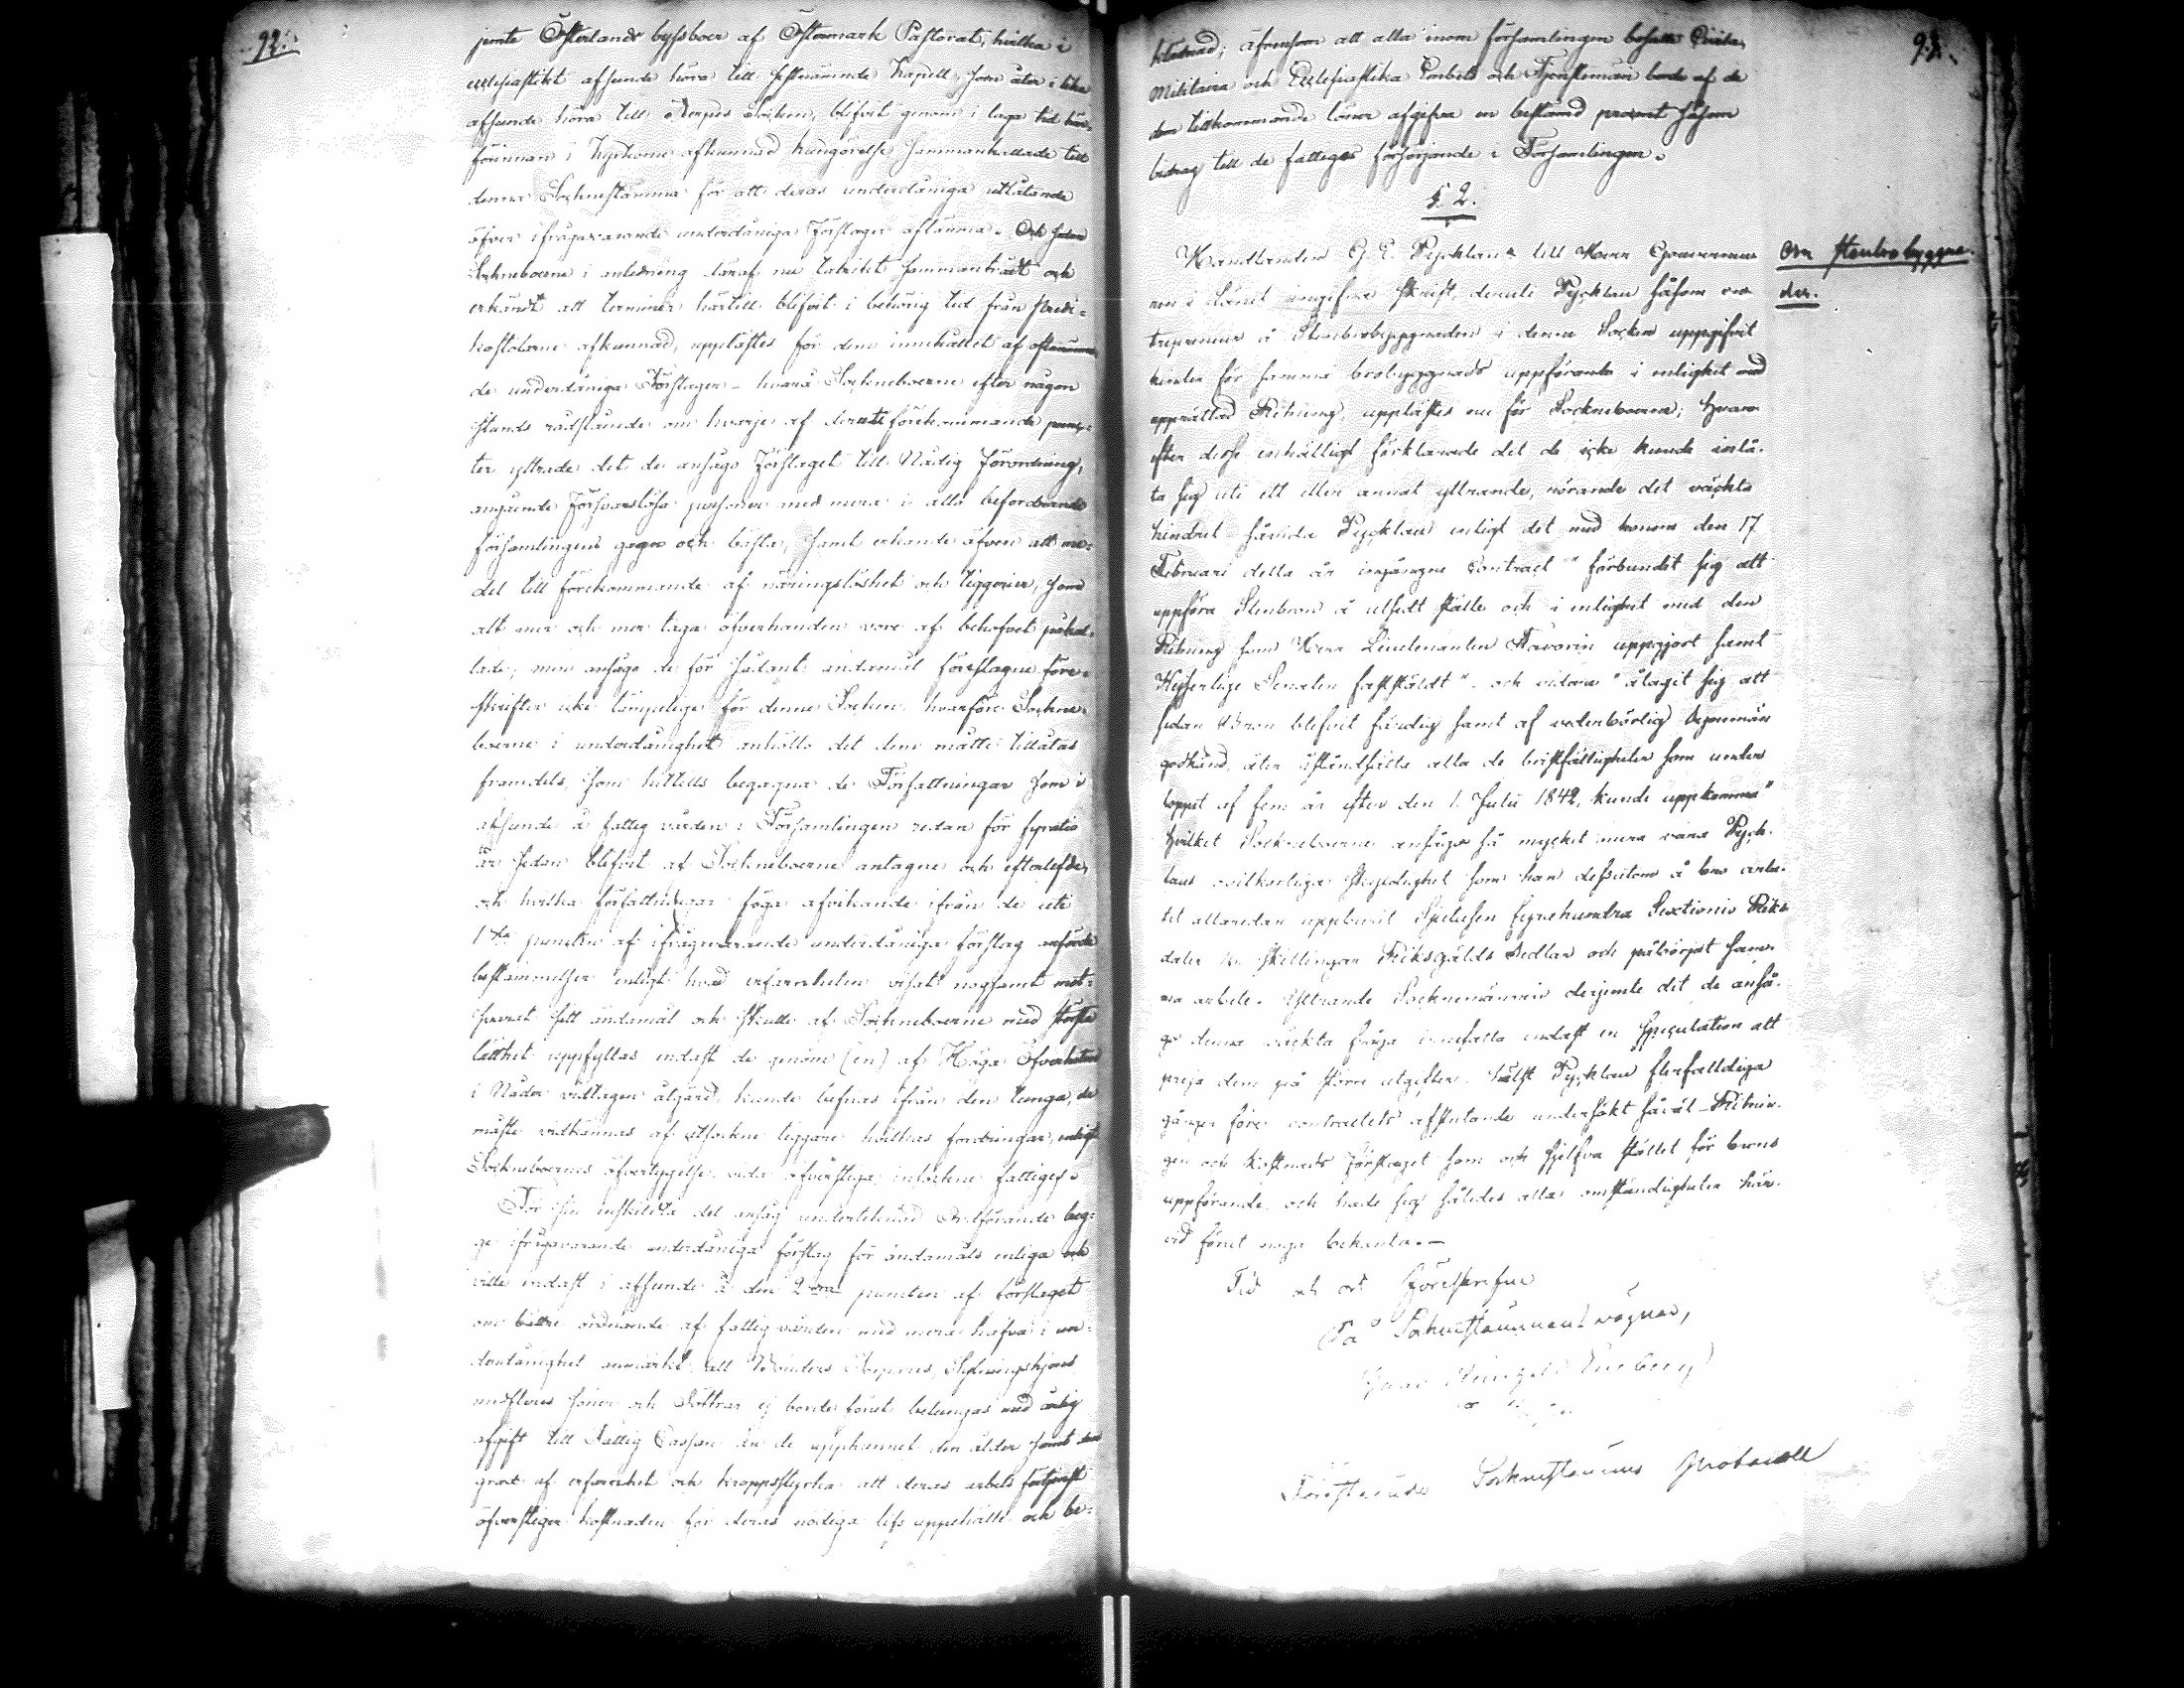 92.
jemte Österlands byssboer af Östermark Pastorat, hvilka i
ecclesiastikt afseende höra till sistnämnde Kapell, som åter i lika
afseende höra till Närpes Socken, blifvit genom i laga tid här-
förinnan i Kyrkorne afkunnad kungörelse sammankallade till
denna Sockne stämma för att deras underdåniga utlåtande
öfver ifrågavarande underdåniga Förslager aflämna. Och sedan
Socknebоerne i anledning deraf nu talrikt sammanträdt och
erkändt att terminen härtill blifvit i behörig tid från predi-
kostolarne afkunnad, upplästes för dem innehållet af oftanämn-
de underdåniga Förslager – hvarå Socknebоerne efter någon
stunds rådslående om hvarje af deruti förekommande punk-
ter yttrade det de ansågo Förslaget till Nådig Förordning,
angående Försvarslösa personer med mera i allo befordrande
församlingens gagn och bästa, samt erkände äfven att me-
del till förekommande af näringslöshet och tiggerier, som
allt mer och mer taga öfverhanden vore af behofvet påkal-
lade; men ansågo de för sådant ändamål föreslagne före-
skrifter icke lämpelige för denne Socken hvarföre Sockne-
boerne i underdånighet anhöllo det dem måtte tillåtas
framdels, som hittills begagna de Författningar som i
afseende å fattig vården i Församlingen redan för fyratio
år sedan blifvit af Socknebоerne antagne och efterlefde,
och hvilka författningar föga afvikande ifrån de uti
1sta puncten af ifrågavarande underdåniga förslag anförde
bestämmelser enligt hvad erfarenheten visat nogsamt mot-
svarat sitt ändamål och skulle af Socknebоerne med största
lätthet uppfyllas endast de genom (en) af Höga Öfverheten
i Nåder vidtagen åtgärd, kunde befrias ifrån den tunga, de
måste vidkännas af utsockne tiggare hvilkas fordringar, enligt
Socknebоernes öfvertygelse vida öfverstiga inhemske fattiges.
För sin enskildta del ansåg undertecknad Ordförande beg-
ge ifrågavarande underdåniga förslag för ändamåls enliga och
ville endast i afseende å den 2dra puncten af förslaget
om bättre ordnande af fattig vården med mera hafva i un-
derdånighet anmärkt att Bönders, Torpares, Inhysingshjons
med fleres söner och Döttrar ej borde förut betungas med årlig
afgift till Fattig Cassan än de uppkunnat den ålder samt den
grad af erfarenhet och kroppsstyrka att deras arbets förtjenst
öfverstiger kostnaden för deras nödiga lifs uppehälle och be-
93.
klädnad; äfvensom att alla inom församlingen bosatte Civila,
Militaira och Ecclesiastika Embets och Tjenstemän borde af de
dem tillkommande löner afgifva en bestämd procent såsom
bidrag till de fattigas försörjande i Församlingen.
§. 2.
Om stenbro byggna-
den.
Handlanden G. E. Dycklaus till Herr Gouverneu-
ren i Länet ingifne skrift, deruti Dycklau såsom en-
trepreneur å Stenbrobyggnaden i denna Socken uppgifvit
hinder för samma brobyggnads uppförande i enlighet med
upprättad Ritning, upplästes nu för Socknebоerne; hvar-
efter desse enhälligt förklarade det de icke kunde inlå-
ta sig uti ett eller annat yttrande, rörande det väckta
hindret såvida Dycklau enligt det med honom den 17
Februari detta år ingångne Contract "förbundit sig att
uppföra Stenbron å utsedt ställe och i enlighet med den
Ritning som Herr Lieutenanten Stavorin uppgjort samt
Kejserlige Senaten fastställdt" och vidare "ålagit sig att
sedan Bron blifvit färdig samt af vederbörlig Besynsman
godkänd, åter iståndsätta alla de bristfälligheter som under
loppet af fem år efter den 1. Julii 1842, kunde uppkomma"
hvilket Socknebоerne ansågo så mycket mera vara Dyck-
laus ovilkorliga skyldighet som han dessutom å bro arbe-
tet allaredan uppburit Sjutusen fyrahundra Sextionio Riks-
daler 16 Skillingar Riksgälds Sedlar och påbörjat sam-
ma arbete. Yttrande Socknemännen derjemte det de anså-
go denna väckta fråga innefatta endast en speculation att
preja dem på större utgifter. Hälst Dycklau flerfalldiga
gånger före contractets afslutande undersökt såväl Ritnin-
gen och Kostnads Förslaget som ock sjelfva stället för brons
uppförande, och hade sig således alla omständigheter här-
vid förut noga bekanta.–
Tid och ort förutskrefne
På Sockneståmmans vägnar,
Sockneståmmans Protocoll